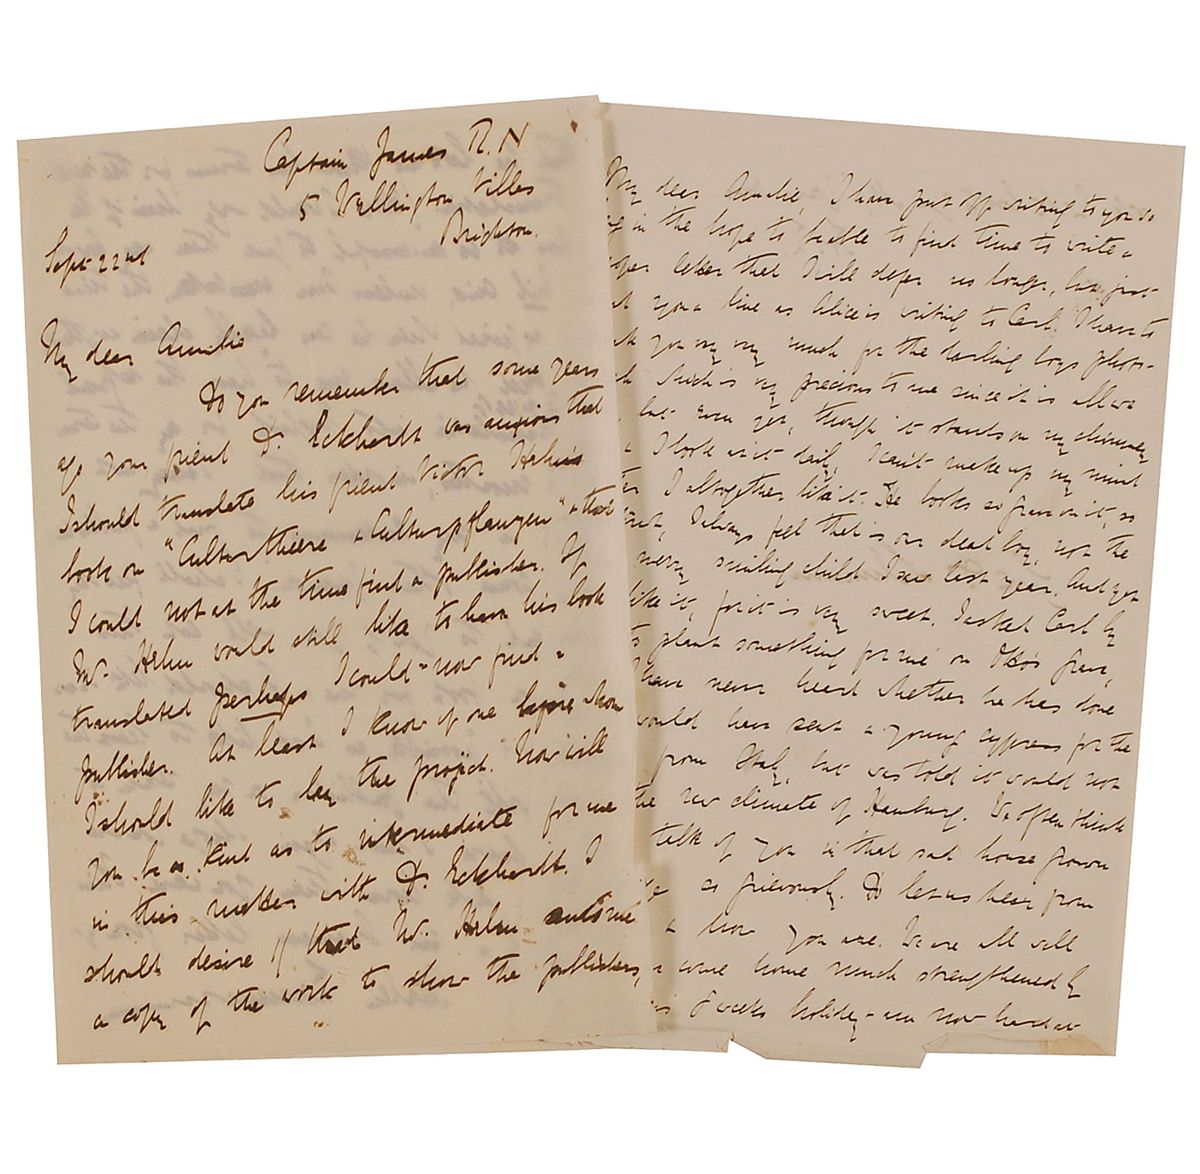 Captain James R.N
5 Wellington Villas
Brighton.
Sept 22nd
My dear Amelie
Do you remember that some years
ago your friend Dr. Eckhardt was anxious that
I should translate his friend Victor Hehn's
book on "Culturthiere & Culturpflanzen" & that
I could not at the time find a publisher. If
Mr. Hehn would still like to have his book
translated perhaps I could now find a
publisher. At least I know of one before whom
I should like to lay the project. Now will
you be as kind as to intermediate for me
in this matter with Dr. Eckhardt. I
should desire if that Mr. Hehn
a copy of the work to show the publishers,
My dear Amelie, I have put off writing to you so
in the hope to be able to find time to write a
letter that I will defer no longer, but just
you a line as Alice is writing to Carl. I have to
you very very much for the darling boys photo-
which is very precious to me since it is all we
but even yet, though it stands on my chimney
I look at it daily, I can't make up my mind
I altogether like it. He looks so grave on it, so
I always feel that is our dead boy, not the
merry smiling child I saw last year. And yet
like it, for it is very sweet. I asked Carl by
to plant something for me on Otto's grave,
have never heard whether he has done
would have sent a young cypress for the
from Italy, but was told it would not
the raw climate of Hamburg. We often think
talk of you in that sad house grown
so grievously. Do let us hear from
how you are. We are all well
come home much strengthened by
8 weeks holiday & are now hard at